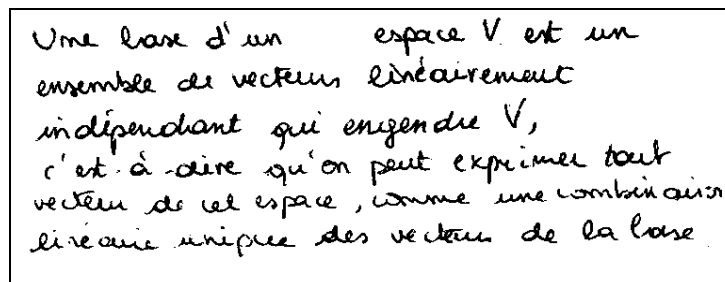 Une base d'un espace V est un
ensemble de vecteurs linéairement
indépendant qui engendre V,
c'est-à-dire qu'on peut exprimer tout
vecteur de cet espace, comme une combinaison
linéaire unique des vecteurs de la base